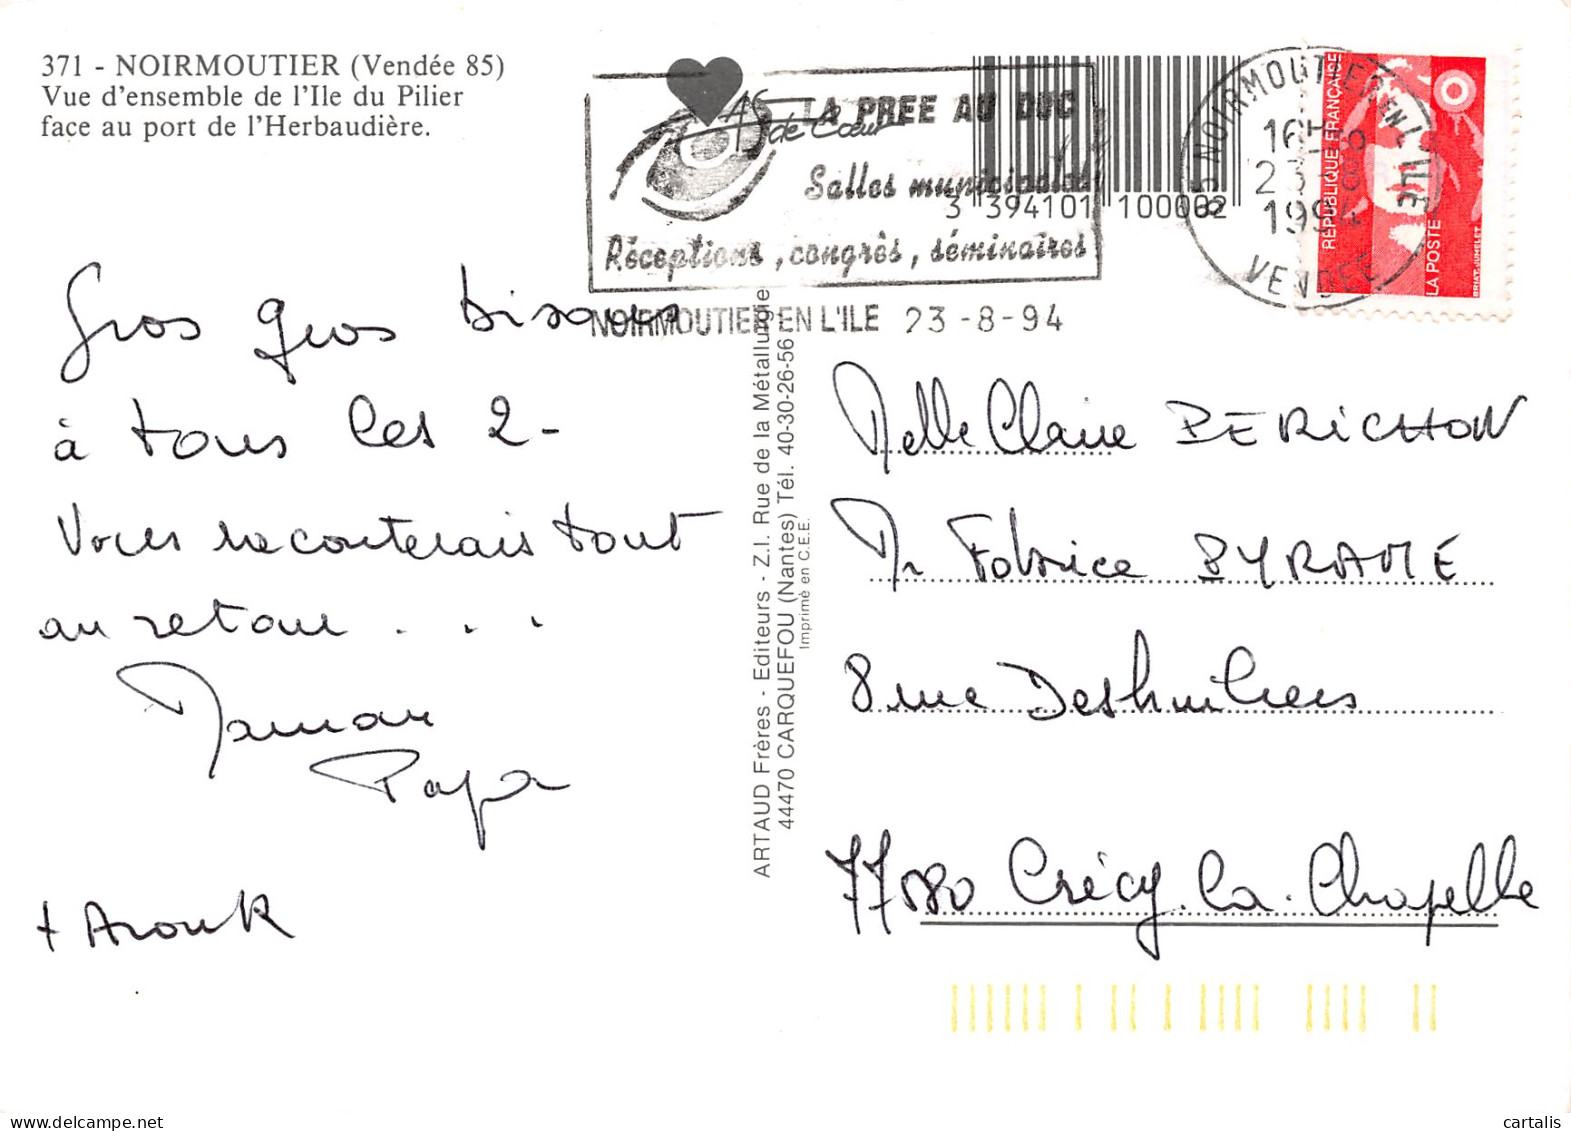 371 - NOIRMOUTIER (Vendée 85)
Vue d'ensemble de l'Ile du Pilier
face au port de l'Herbaudière.
As de Cœur
LA PREE AU DUC
Salles municipales
Réceptions, congrès, séminaires
NOIRMOUTIER EN L'ILE 23-8-94
3 394101 100002
NOIRMOUTIER EN L'ILE
16H
23-8
1994
VENDEE
RÉPUBLIQUE FRANÇAISE
LA POSTE
BRIAT-JUMELET
Gros gros bisous
à tous les 2-
Vous raconterais tout
au retour . . .
Maman
Papa
+ Anouk
ARTAUD Frères - Editeurs - Z.I. Rue de la Métallurgie
44470 CARQUEFOU (Nantes) Tél. 40-30-26-56
Imprimé en C.E.E.
Melle Claire BERICHON
Mr Fabrice PYRAME
8 rue Deshuilliers
77580 Crécy-la-Chapelle
cartalis